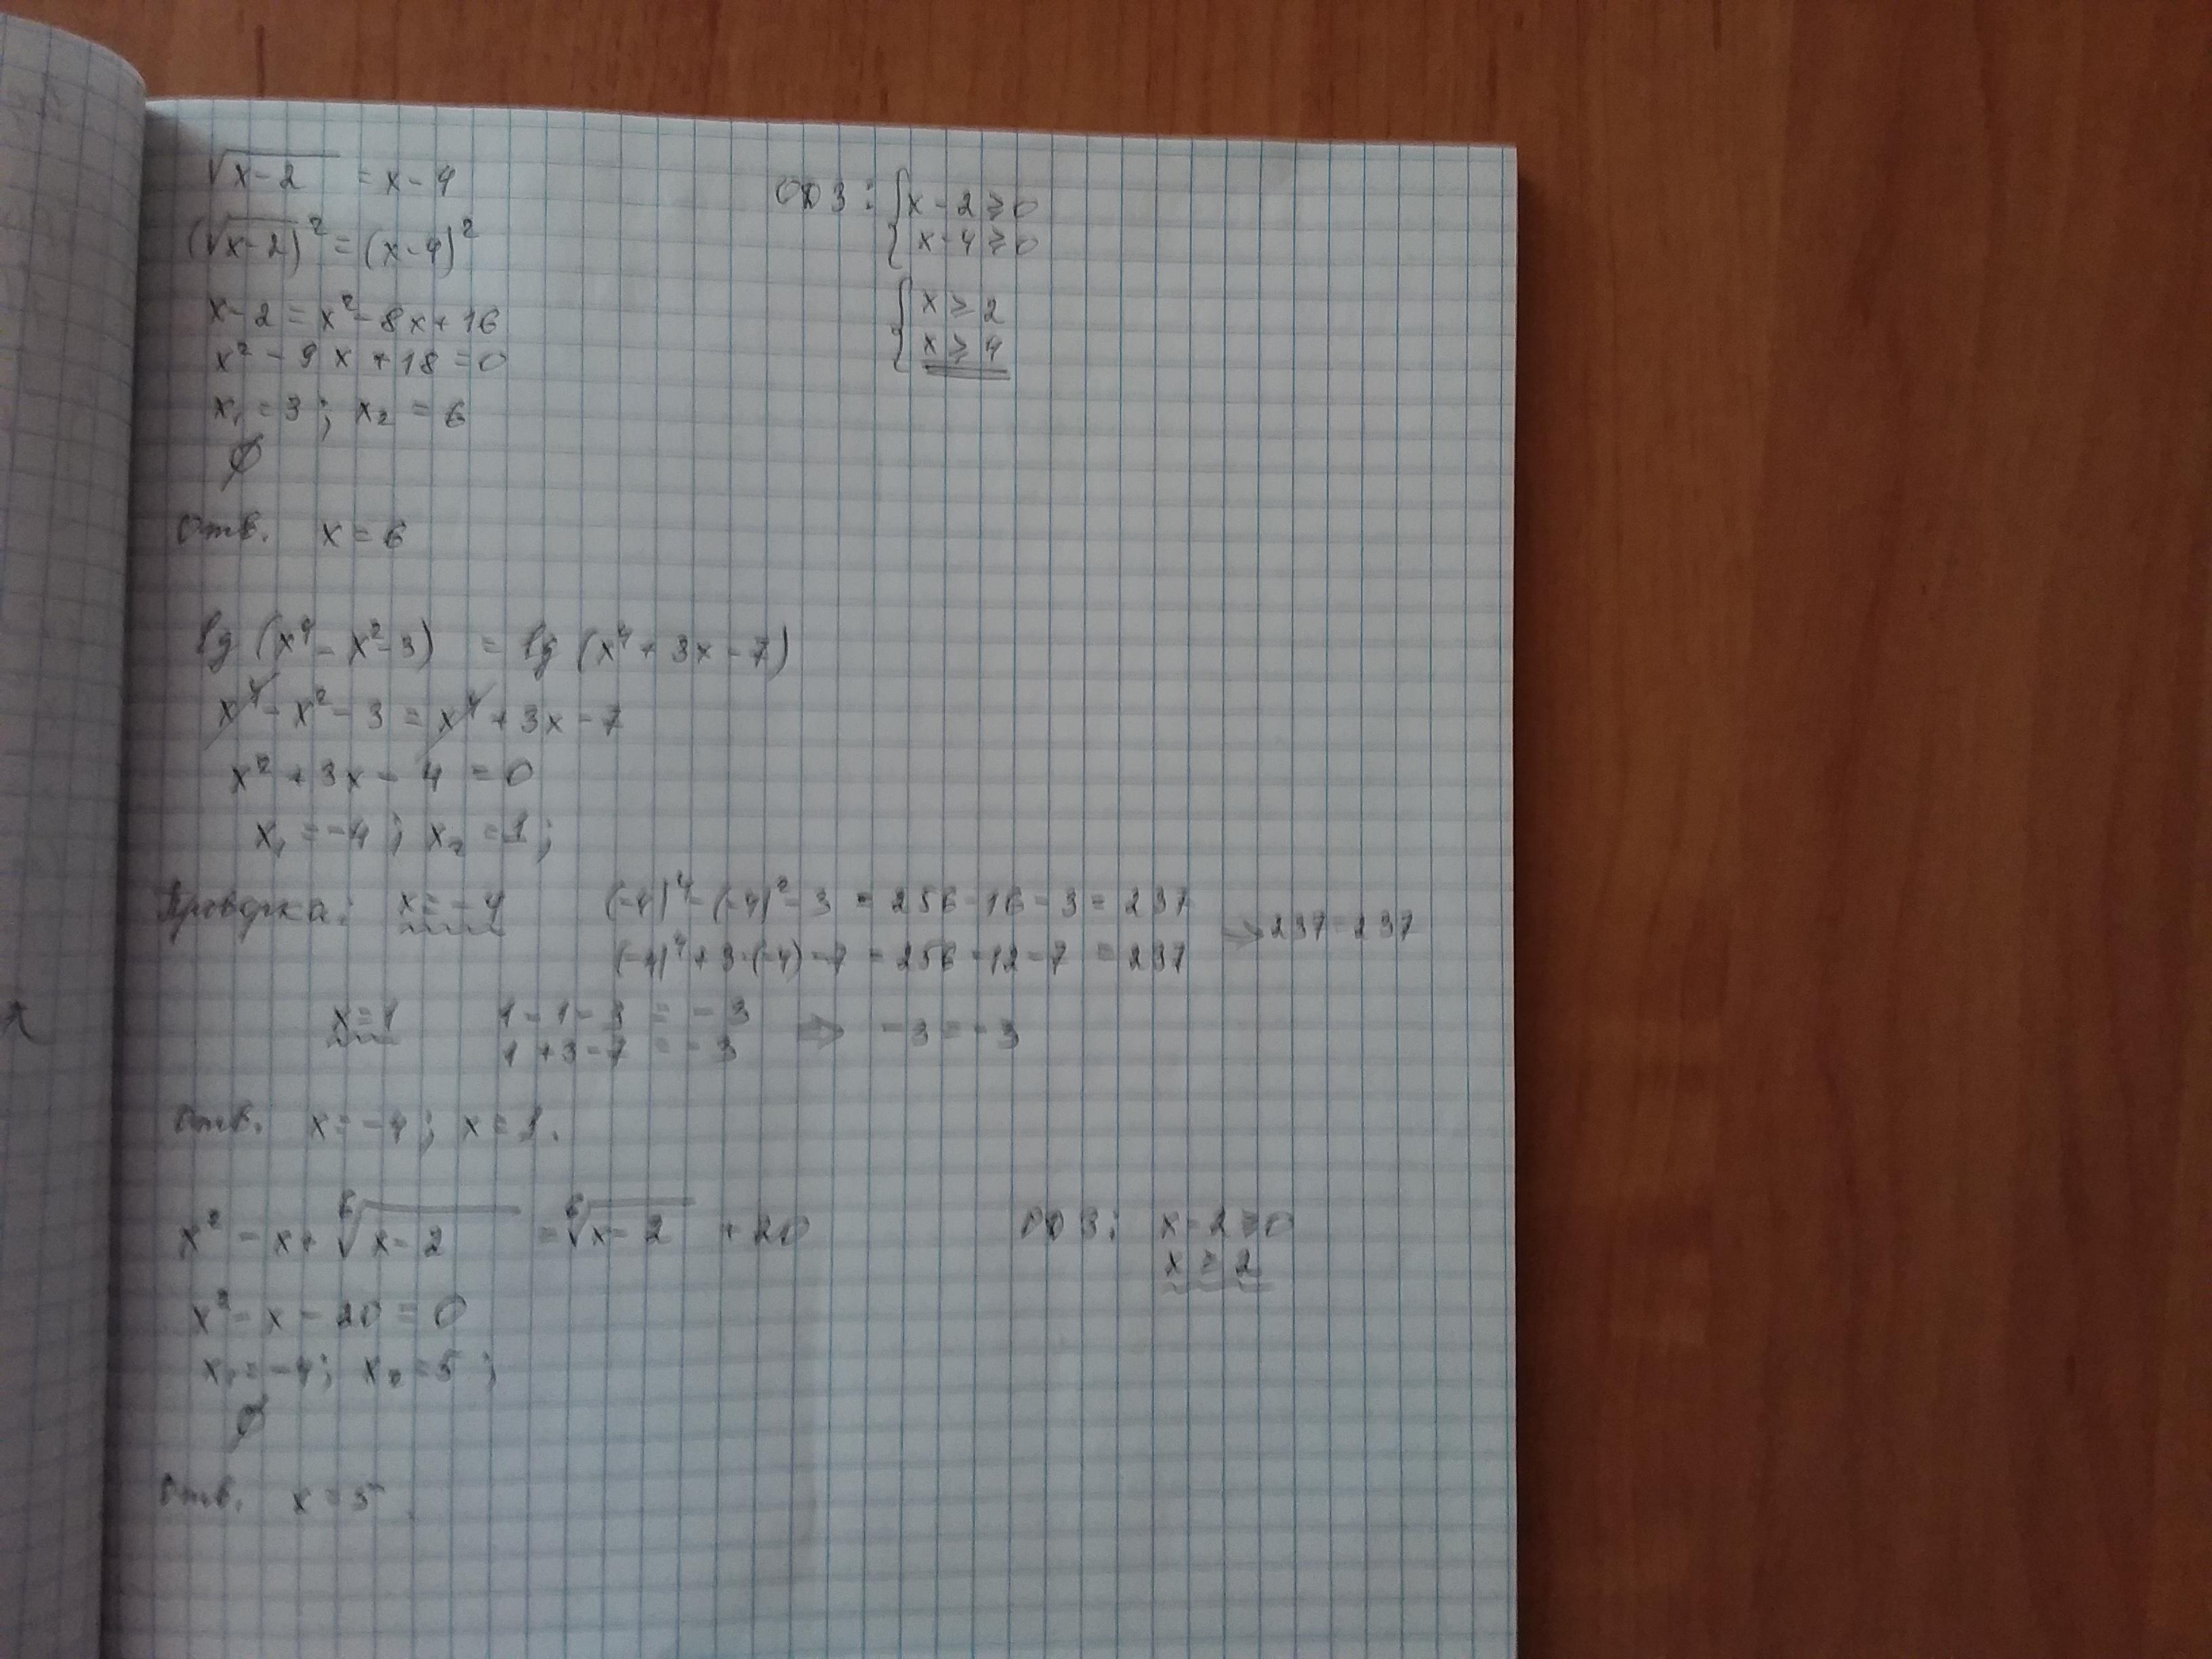 √(x-2) = x-4
(√(x-2))² = (x-4)²
x-2 = x²-8x+16
x²-9x+18=0
x₁=3; x₂=6
∅
Отв. x=6
ОДЗ: { x-2≥0
x-4≥0
{ x≥2
x≥4
lg (x⁴-x²-3) = lg (x⁴+3x-7)
x⁴-x²-3=x⁴+3x-7
x²+3x-4=0
x₁=-4; x₂=1;
Проверка: x=-4 (-4)⁴-(-4)²-3=256-16-3=237
(-4)⁴+3·(-4)-7=256-12-7=237 ⇒ 237=237
x=1 1-1-3=-3
1+3-7=-3 ⇒ -3=-3
Отв. x=-4; x=1.
x²-x+⁶√(x-2) = ⁶√(x-2) +20
x²-x-20=0
x₁=-4; x₂=5;
∅
Отв. x=5.
ОДЗ: x-2≥0
x≥2